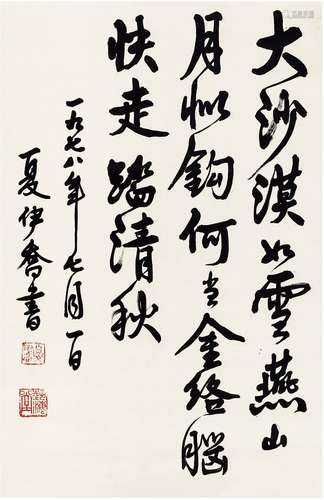 大沙漠如雪燕山
月似鈎何当金络腦
快走踏清秋
一九七八年七月一日
夏伊喬書